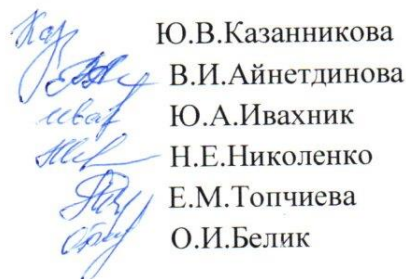 Ю.В.Казанникова
В.И.Айнетдинова
Ю.А.Ивахник
Н.Е.Николенко
Е.М.Топчиева
О.И.Белик